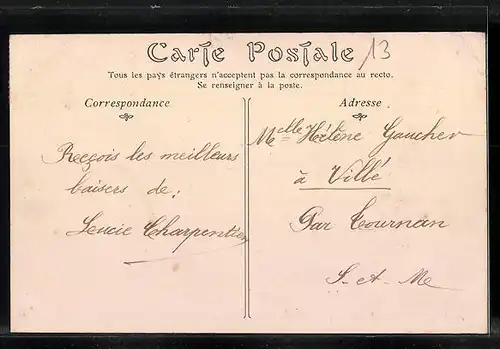 Carte Postale
13
Tous les pays étrangers n'acceptent pas la correspondance au recto.
Se renseigner à la poste.
Correspondance
Reçois les meilleurs
baisers de:
Lucie Charpentier
Adresse
Melle Hélène Gaucher
à Villé
Par Tournan
S-et-Me